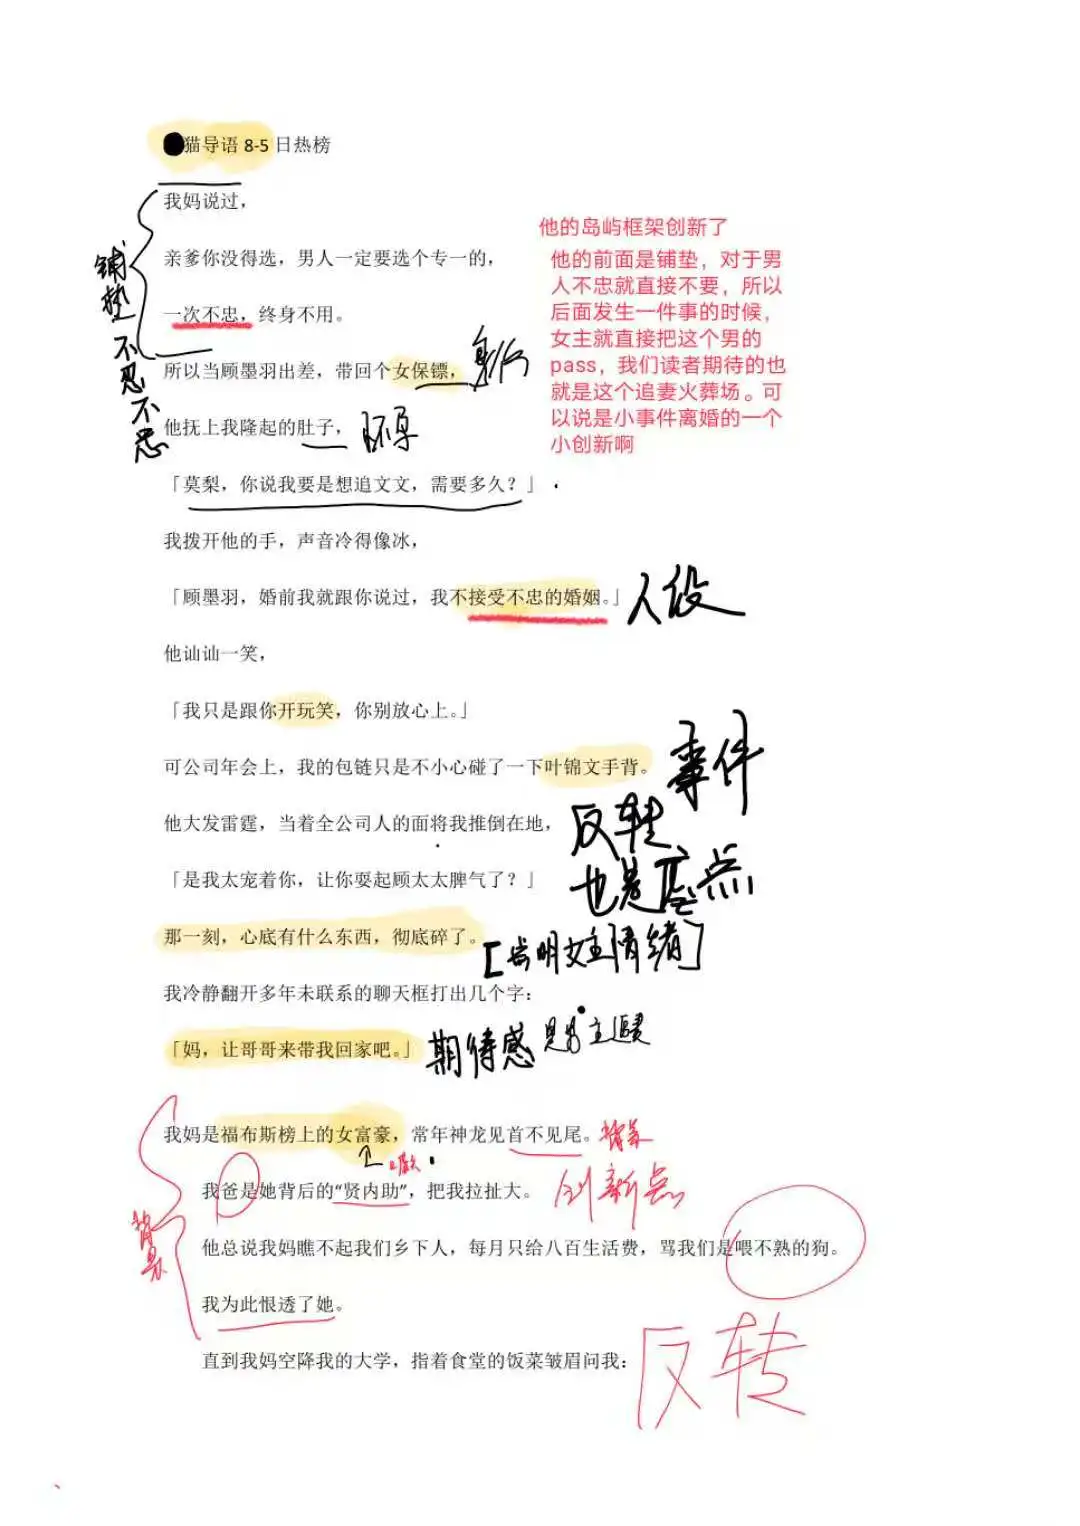 猫导语 8-5 日热榜
我妈说过，
他的岛屿框架创新了
亲爹你没得选，男人一定要选个专一的，
他的前面是铺垫，对于男
人不忠就直接不要，所以
后面发生一件事的时候，
女主就直接把这个男的
pass，我们读者期待的也
就是这个追妻火葬场。可
以说是小事件离婚的一个
小创新啊
铺垫 不忍不忠
一次不忠，终身不用。
所以当顾墨羽出差，带回个女保镖， 身份
他抚上我隆起的肚子， 怀孕
「莫梨，你说我要是想追文文，需要多久？」
我拨开他的手，声音冷得像冰，
「顾墨羽，婚前我就跟你说过，我不接受不忠的婚姻。」 人设
他讪讪一笑，
「我只是跟你开玩笑，你别放心上。」
可公司年会上，我的包链只是不小心碰了一下叶锦文手背。 事件
他大发雷霆，当着全公司人的面将我推倒在地， 反转
「是我太宠着你，让你耍起顾太太脾气了？」 也是 点
那一刻，心底有什么东西，彻底碎了。
明女主情绪
我冷静翻开多年未联系的聊天框打出几个字：
「妈，让哥哥来带我回家吧。」 期待感 男主
我妈是福布斯榜上的女富豪，常年神龙见首不见尾。 背景
我爸是她背后的“贤内助”，把我拉扯大。 创新点
背景
他总说我妈瞧不起我们乡下人，每月只给八百生活费，骂我们是喂不熟的狗。
我为此恨透了她。
直到我妈空降我的大学，指着食堂的饭菜皱眉问我： 反转